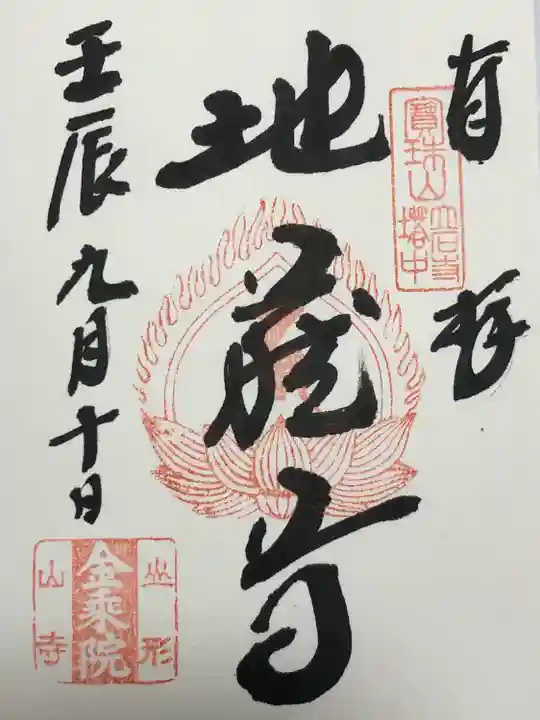 拝
寳珠山
立石寺
塔中
地蔵尊
壬辰九月十日
山形
金乘院
山寺